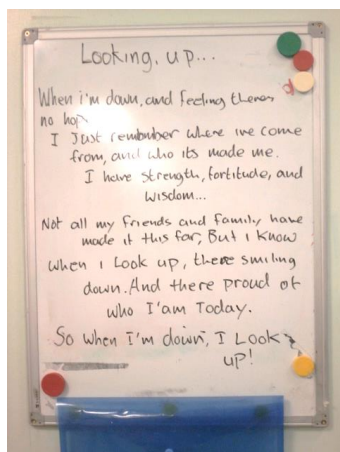 Looking, up...
When i'm down, and feeling theres
no hop
I Just remember where ive come
from, and who its made me.
I have strength, fortitude, and
wisdom...
Not all my friends and family have
made it this far, But i know
when i Look up, there smiling
down. And there proud of
who I'am Today.
So when I'm down, I Look
up!